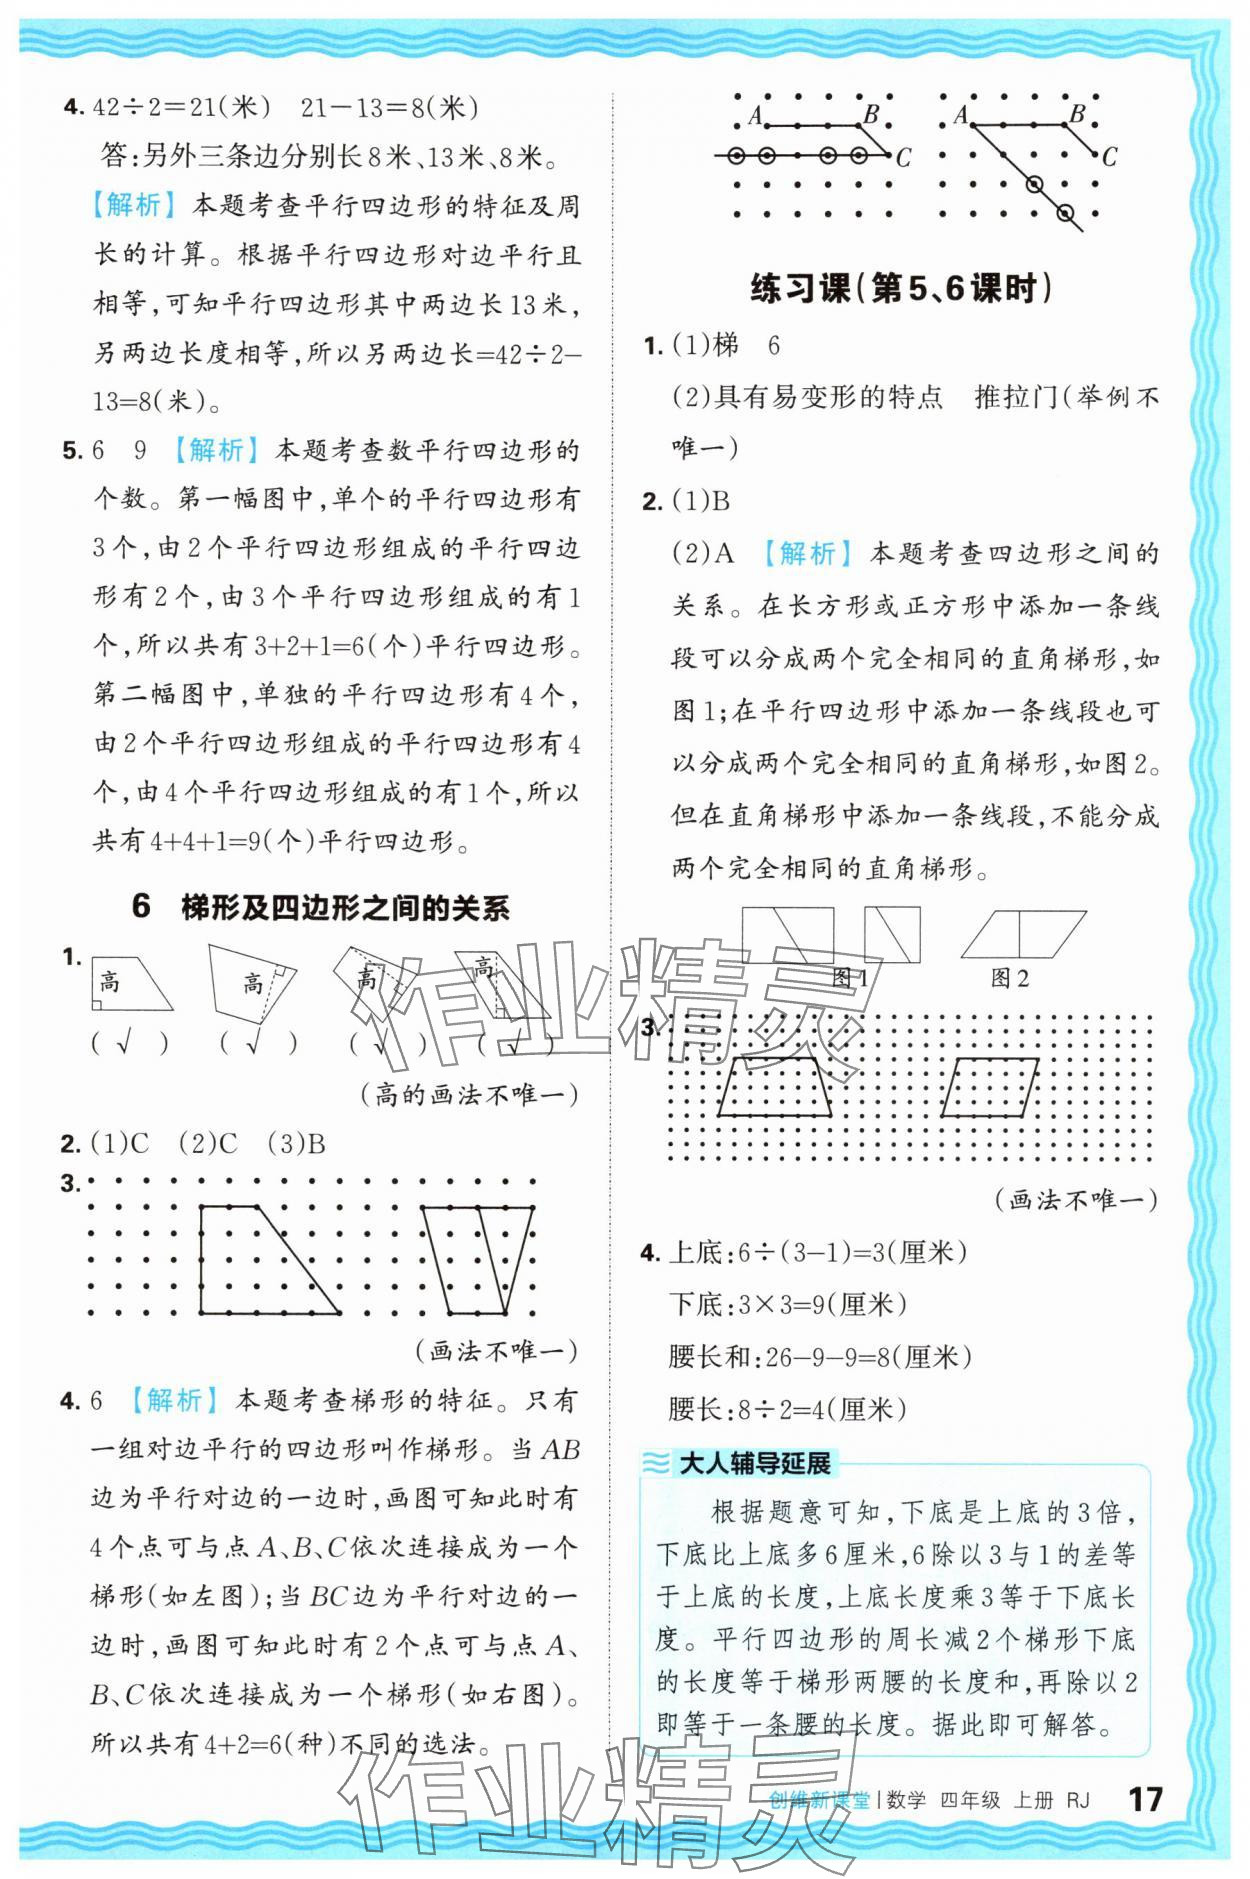 4. 42÷2=21(米)  21-13=8(米)
答:另外三条边分别长8米、13米、8米。
【解析】本题考查平行四边形的特征及周
长的计算。根据平行四边形对边平行且
相等,可知平行四边形其中两边长13米,
另两边长度相等,所以另两边长=42÷2-
13=8(米)。
5. 6  9 【解析】本题考查数平行四边形的
个数。第一幅图中,单个的平行四边形有
3个,由2个平行四边形组成的平行四边
形有2个,由3个平行四边形组成的有1
个,所以共有3+2+1=6(个)平行四边形。
第二幅图中,单独的平行四边形有4个,
由2个平行四边形组成的平行四边形有4
个,由4个平行四边形组成的有1个,所以
共有4+4+1=9(个)平行四边形。
6 梯形及四边形之间的关系
1. 高 高 高 高
( √ ) ( √ ) ( √ ) ( √ )
(高的画法不唯一)
2. (1)C (2)C (3)B
3.
(画法不唯一)
4. 6 【解析】本题考查梯形的特征。只有
一组对边平行的四边形叫作梯形。当AB
边为平行对边的一边时,画图可知此时有
4个点可与点A、B、C依次连接成为一个
梯形(如左图);当BC边为平行对边的一
边时,画图可知此时有2个点可与点A、
B、C依次连接成为一个梯形(如右图)。
所以共有4+2=6(种)不同的选法。
A B C A B C
练习课(第5、6课时)
1. (1)梯 6
(2)具有易变形的特点 推拉门(举例不
唯一)
2. (1)B
(2)A 【解析】本题考查四边形之间的
关系。在长方形或正方形中添加一条线
段可以分成两个完全相同的直角梯形,如
图1;在平行四边形中添加一条线段也可
以分成两个完全相同的直角梯形,如图2。
但在直角梯形中添加一条线段,不能分成
两个完全相同的直角梯形。
图1 图2
3.
(画法不唯一)
4. 上底:6÷(3-1)=3(厘米)
下底:3×3=9(厘米)
腰长和:26-9-9=8(厘米)
腰长:8÷2=4(厘米)
大人辅导延展
根据题意可知,下底是上底的3倍,
下底比上底多6厘米,6除以3与1的差等
于上底的长度,上底长度乘3等于下底长
度。平行四边形的周长减2个梯形下底
的长度等于梯形两腰的长度和,再除以2
即等于一条腰的长度。据此即可解答。
创维新课堂|数学 四年级 上册 RJ 17
作业精灵
作业精灵